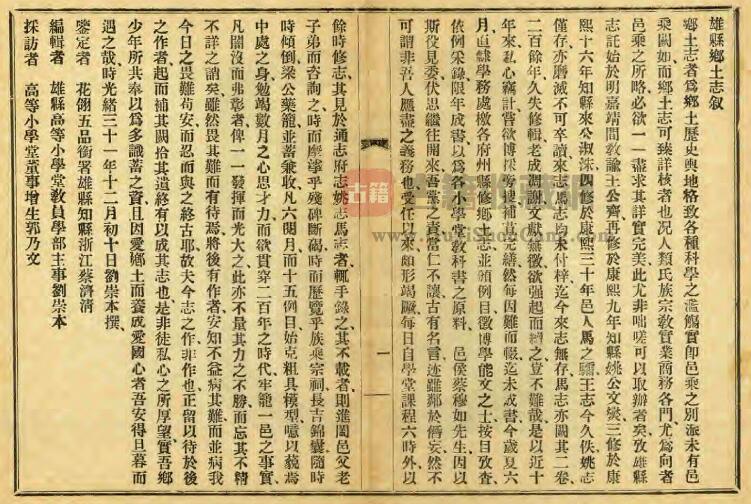 雄縣鄉土志敘
鄉土志者爲鄉土歷史輿地格致各種科學之濫觴實卽邑乘之別派未有邑
乘闕如而鄉土志可臻詳核者也况人類氏族宗敎實業商務各門尤爲向者
邑乘之所略必欲一一盡求其詳實完美此尤非咄嗟可以取辦者矣攷雄縣
志託始於明嘉靖間敎諭王公齊再修於康熙九年知縣姚公文燮三修於康
熙十六年知縣來公淑洙四修於康熙三十年邑人馬之驦王志今久佚姚志
僅存亦磨滅不可卒讀來志馬志均未付梓迄今來志無存馬志亦闕其二卷
二百餘年久失修輯老成凋謝文獻無徵欲强起而續之豈不難哉是以近十
年來私心竊計嘗欲博採旁搜補直志緒然每因難而輟迄未成書今歲夏六
月直隸學務處檄各府州縣修鄉土志並頒例目徵博學能文之士按目攷查
依例采錄限年成書以爲各小學堂敎科書之原料 邑侯蔡穆如先生因以
斯役見委伏思繼往開來吾黨之責當仁不讓古有名言迹雖鄰於僭妄然不
可謂非吾人應盡之義務也受任以來頗形竭蹶每日自學堂課程六時外以
一
餘時修志其見於通志府志姚志馬志者輒手錄之其不載者則進閭邑父老
子弟而咨詢之時而摩挲乎殘碑斷碣時而歷覽乎族乘宗祠長吉錦囊隨時
時傾倒梁公藥籠並蓄兼收凡六閱月而十五例目始克粗具模型噫以藐焉
中處之身勉竭數月之心思才力而欲貫穿二百年之時代牢籠一邑之事實
凡闇沒而弗彰者俾一一發揮而光大之此亦不量其力之不勝而忘其不精
不詳之謂矣雖然畏其難而有待焉將後有作者安知不益病其難而並病我
今日之畏難苟安而忍而與之終古耶故夫今志之作非作也正留以待於後
之作者起而補其闕拾其遺終有以成其志也是非徒私心之所厚望實吾鄉
少年所共奉以爲多識蓄之資且因愛鄉土而養成愛國心者吾安得旦暮而
遇之哉時光緖三十一年十二月初十日劉崇本撰
鑒定者 花翎五品銜署雄縣知縣浙江蔡濟淸
編輯者 雄縣高等小學堂敎員學部主事劉崇本
採訪者 高等小學堂董事增生郭乃文
古籍
www.GujiShuCang.com